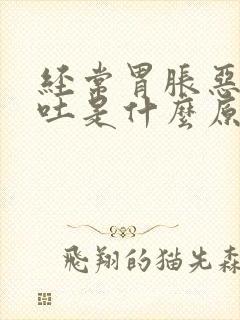 經常胃脹惡
吐是什麼原
飛翔的猫先森